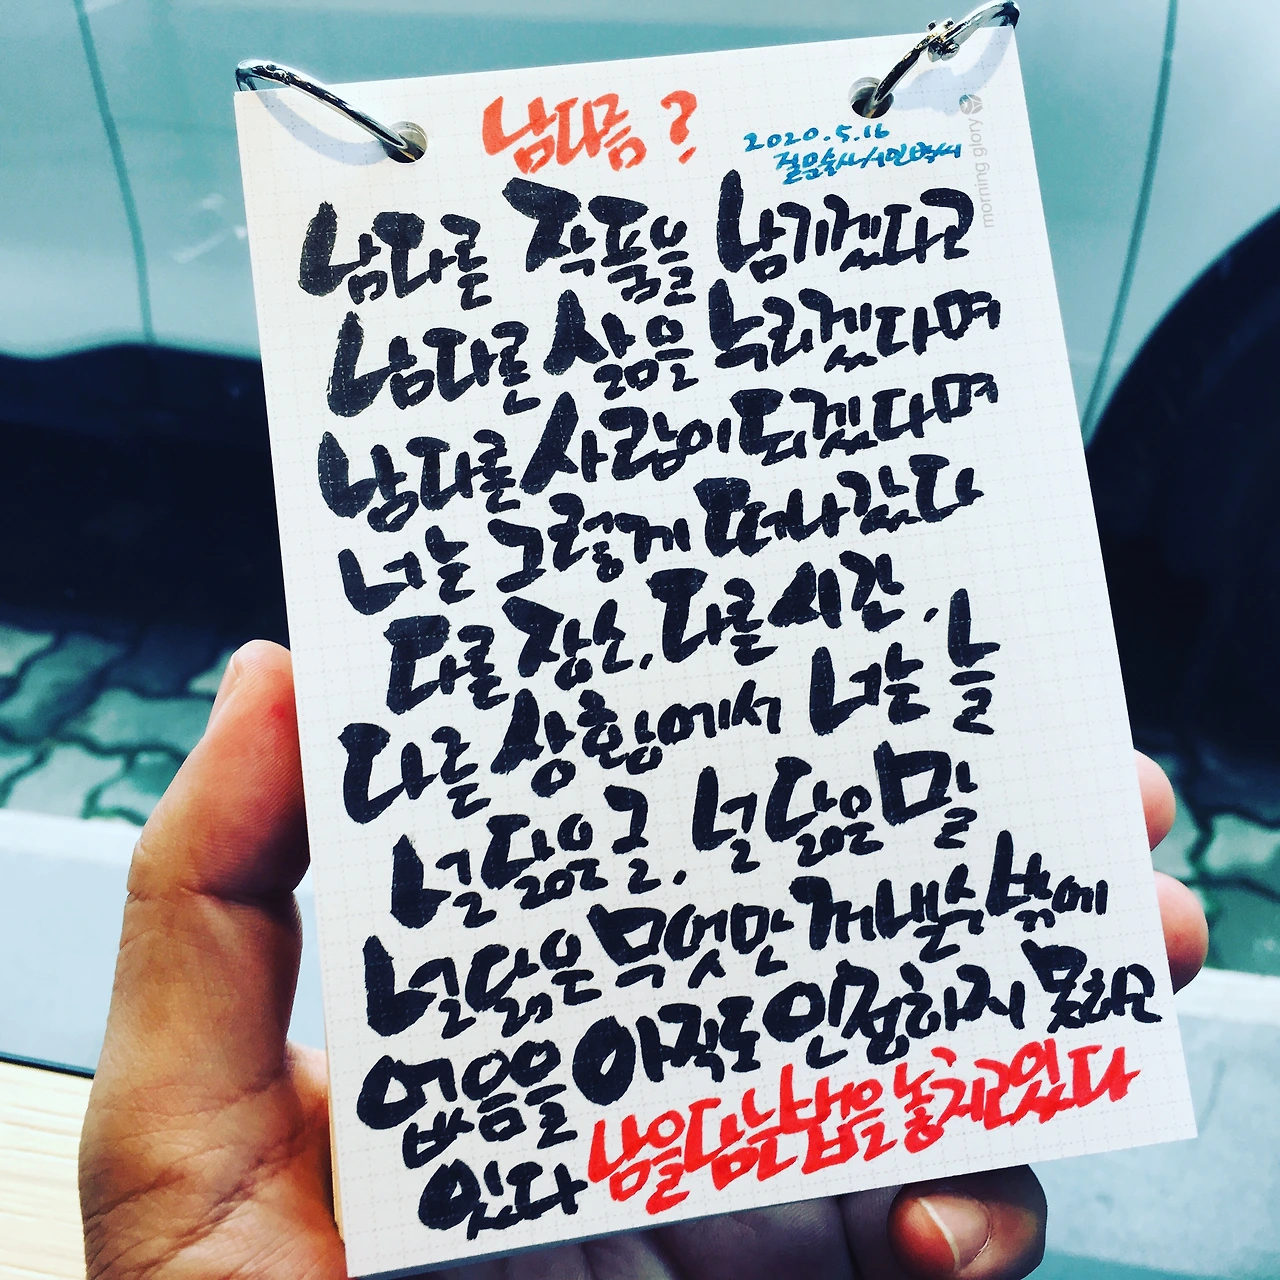 남다름?
2020.5.16
젊음술사/시인박씨
morning glory
남다른 작품을 남기겠다고
남다른 삶을 누리겠다며
남다른 사람이 되겠다며
너는 그렇게 떠나갔다
다른 장소, 다른 시간,
다른 상황에서 너는 늘
널 닮은 글, 널 닮은 말
널 닮은 무엇만 꺼낼 수 밖에
없음을 아직도 인정하지 못하고
있다 남을 담는 법을 놓치고 있다